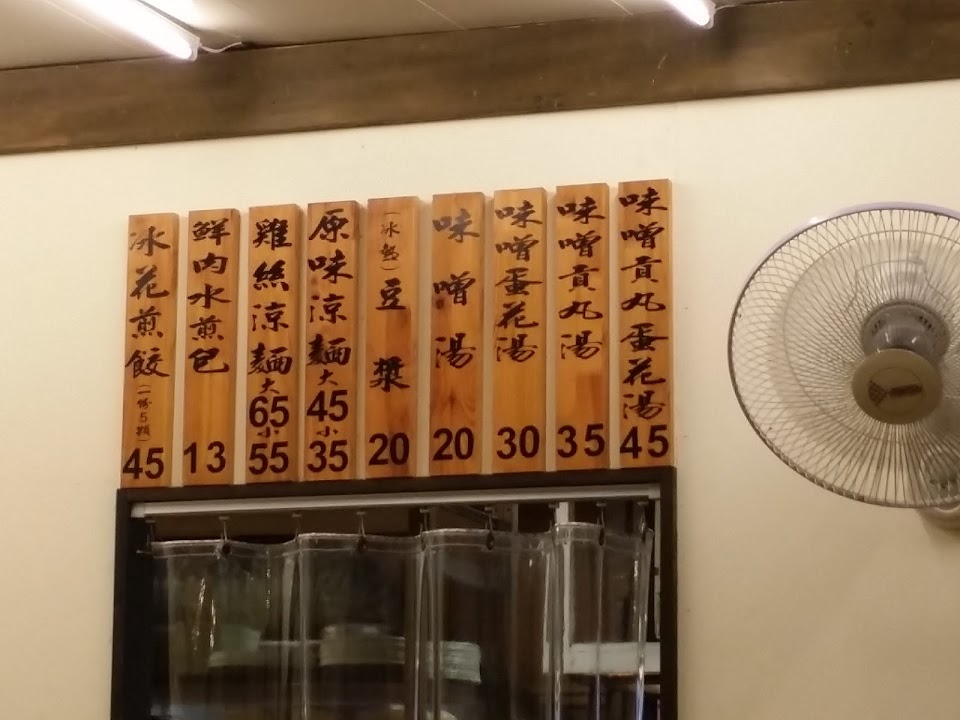 味噌貢丸蛋花湯 45
味噌貢丸湯 35
味噌蛋花湯 30
味噌湯 20
(冰熱)豆漿 20
原味涼麵 大45 小35
雞絲涼麵 大65 小55
鮮肉水煎包 13
冰花煎餃(一份5顆) 45